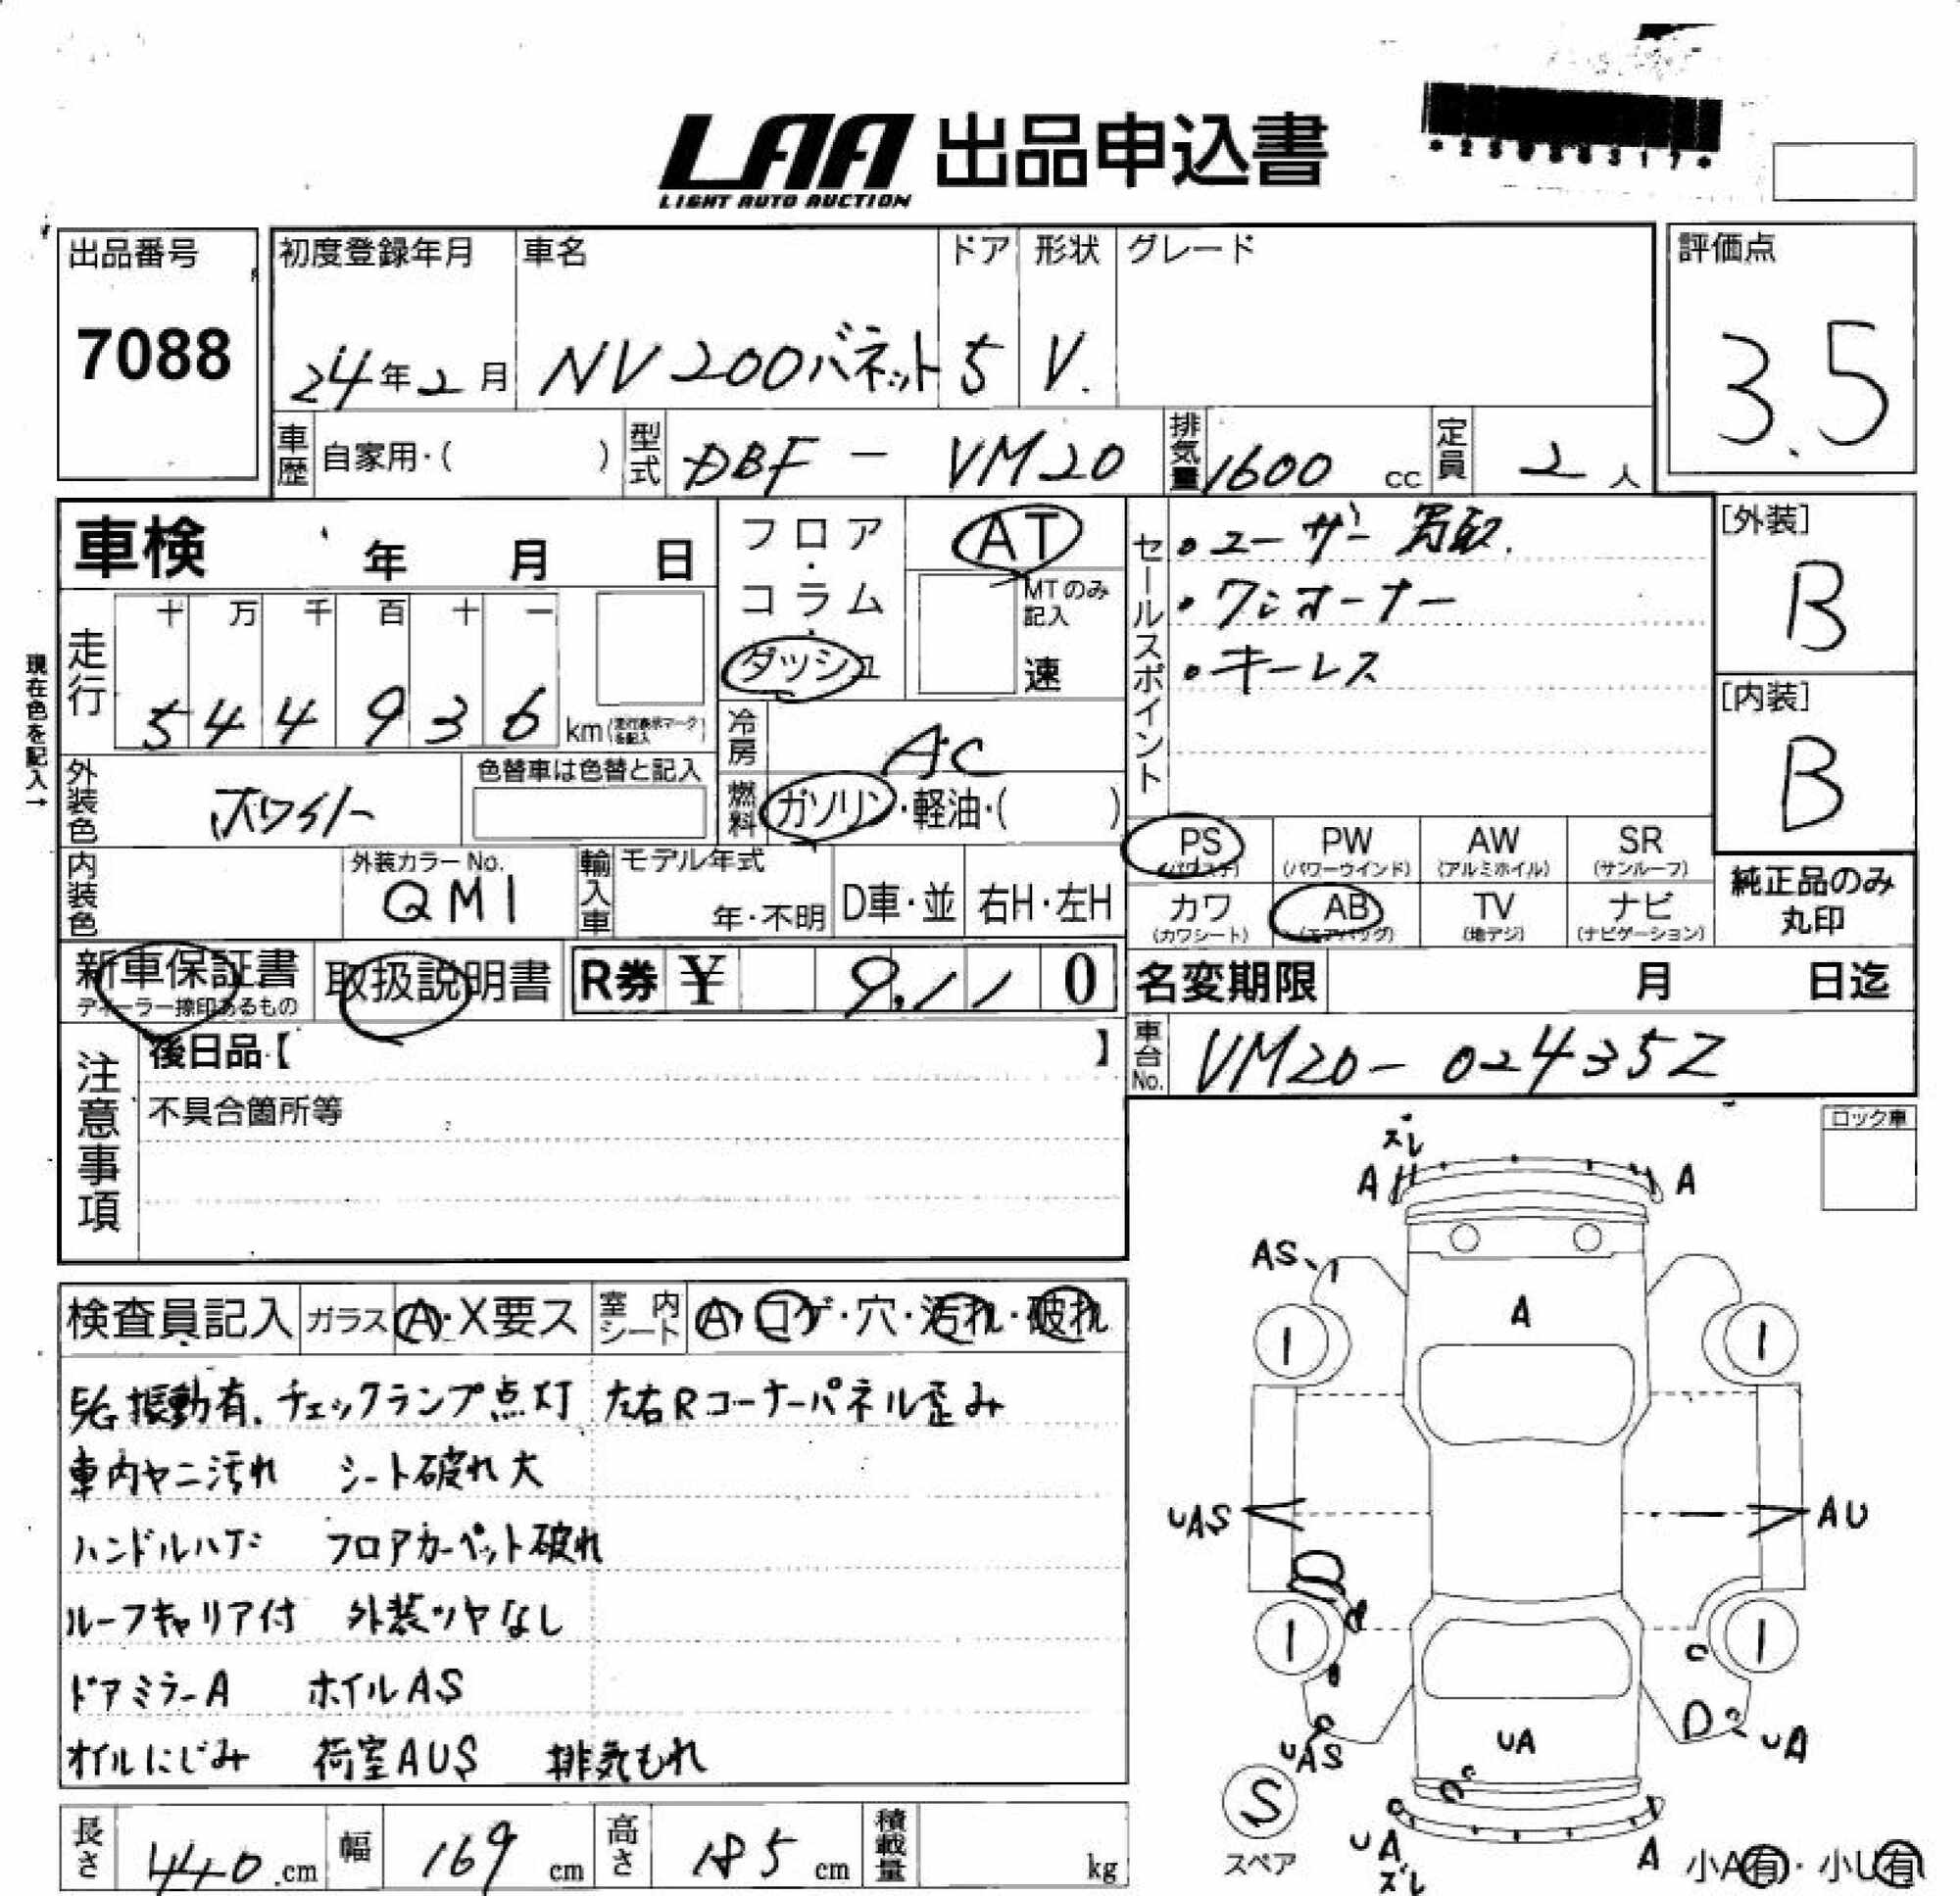 LAA 出品申込書
LIGHT AUTO AUCTION
出品番号
7088
初度登録年月 車名 ドア 形状 グレード
24年2月 NV200バネット 5 V.
評価点
3.5
車歴 自家用・( ) 型式 DBF - VM20 排気量 1600 cc 定員 2 人
車検 年 月 日
フロア・コラム・ダッシュ
AT
MTのみ記入
速
セールスポイント
・ユーザー買取.
・ワンオーナー
・キーレス
[外装]
B
[内装]
B
現在色を記入→
走行 十 万 千 百 十 一
5 4 4 9 3 6 km(走行表示マークを記入)
冷房 AC
外装色 ホワイト 色替車は色替と記入
燃料 ガソリン・軽油・( )
内装色 外装カラーNo. QM1
輸入車 モデル年式 年・不明 D車・並 右H・左H
PS (パワステ) PW (パワーウインド) AW (アルミホイル) SR (サンルーフ)
カワ (カワシート) AB (エアバッグ) TV (地デジ) ナビ (ナビゲーション)
純正品のみ丸印
新車保証書 ディーラー捺印あるもの 取扱説明書 R券 ¥ 9,110
名変期限 月 日迄
車台No. VM20-024352
注意事項
後日品【 】
不具合箇所等
ロック車
検査員記入 ガラス A・X要ス 室内シート A・コゲ・穴・汚れ・破れ
E/G振動有.チェックランプ点灯 左右Rコーナーパネル歪み
車内ヤニ汚れ シート破れ大
ハンドルハゲ フロアカーペット破れ
ルーフキャリア付 外装ツヤなし
ドアミラーA ホイルAS
オイルにじみ 荷室AUS 排気もれ
長さ 440 cm 幅 169 cm 高さ 185 cm 積載量 kg
ズレ
A A
AS
A
UAS AU
D
UAS UA UA
S
スペア
UA
ズレ
A
小A有・小U有